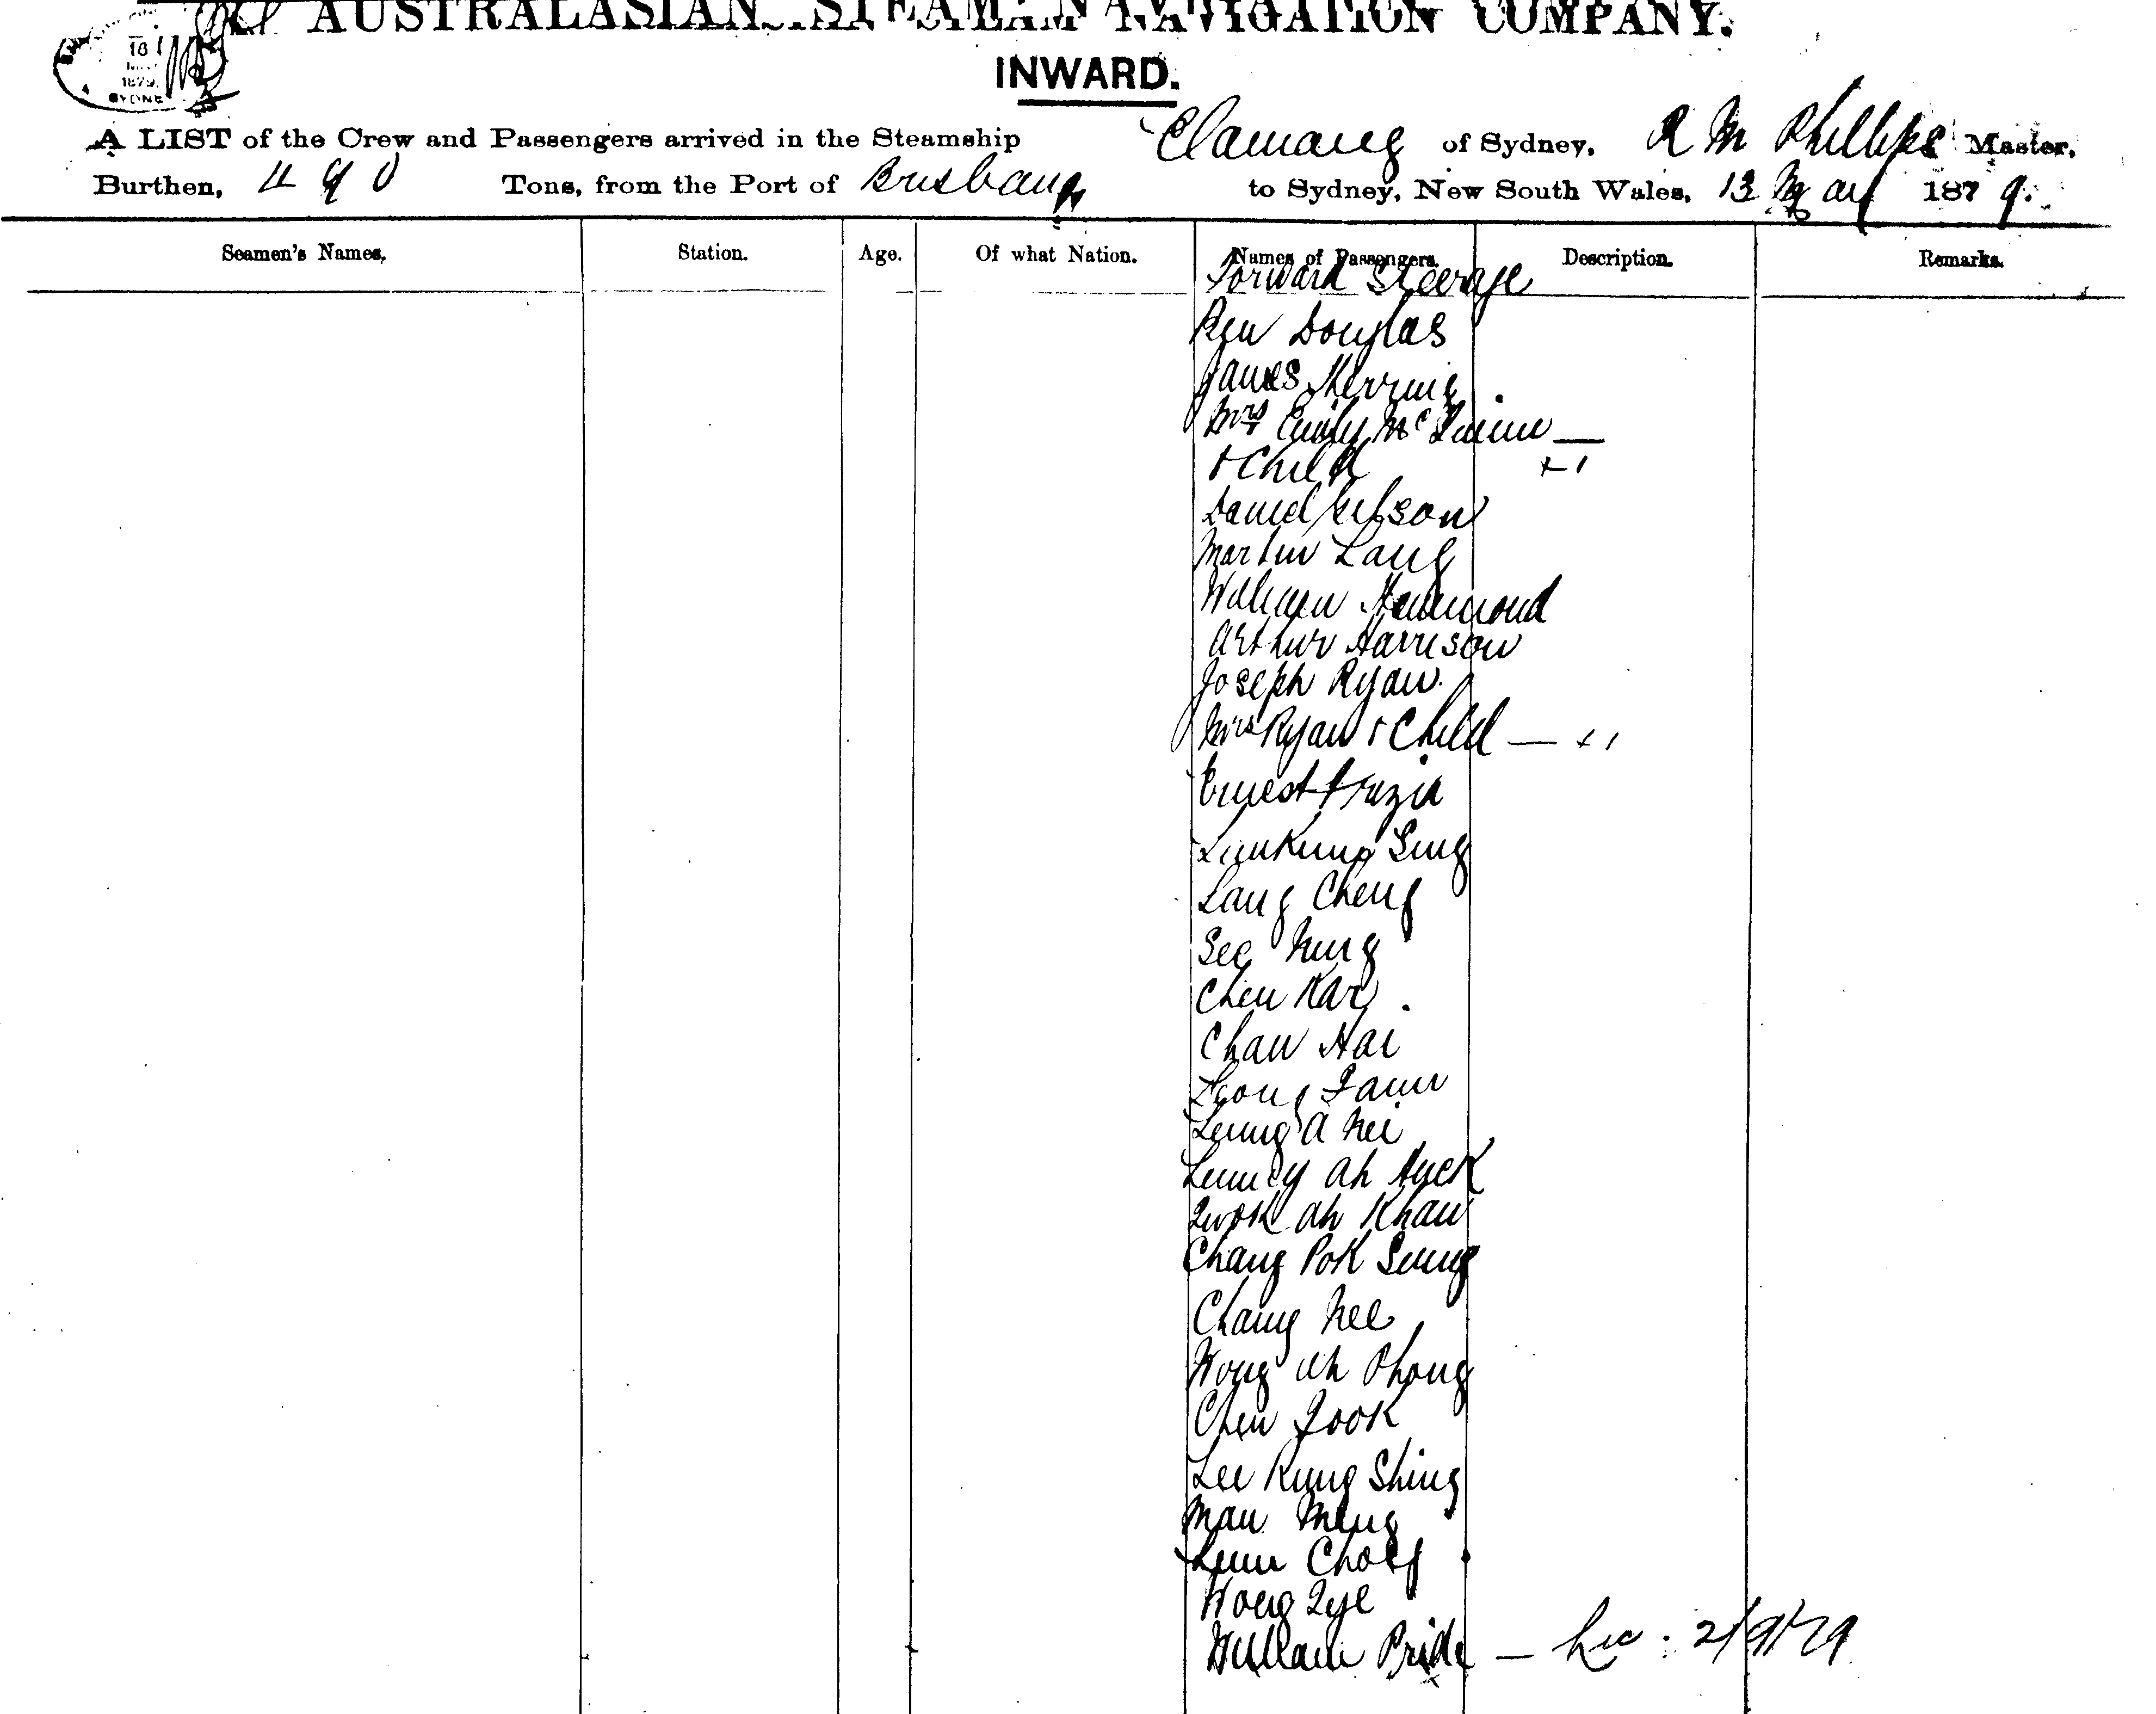 AUSTRALASIAN STEAM NAVIGATION COMPANY.
INWARD.
18
1879
SYDNE
A LIST of the Crew and Passengers arrived in the Steamship Elamang of Sydney, R M Phillips Master,
Burthen, 490 Tons, from the Port of Brisbane to Sydney, New South Wales, 13 May 1879.
Seamen's Names. Station. Age. Of what Nation. Names of Passengers. Description. Remarks.
Forward Steerage
Ben Douglas
James Herring
Mrs Emily Mc —
+ Child +1
David Gibson
Martin Lang
William Hammond
Arthur Harrison
Joseph Ryan.
Mrs Ryan + Child — +1
Ernest
Sing
Lang Cheng
See Nung
Chen Kar
Chan Hai
Leong
Leung A Nei
Ah
Ah Khan
Chang Pok Seung
Chang Nee
Wong Ah Phong
Chen Fook
Lee Kung Shing
Man Meng
Choey
Wong
William Pride — 2/9/79